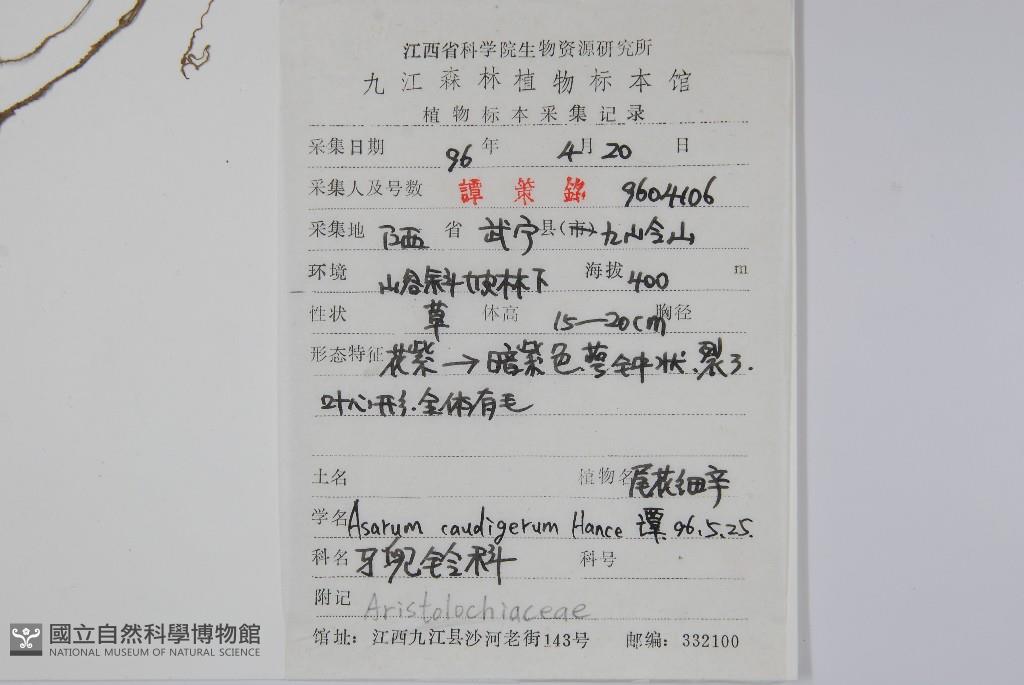 江西省科学院生物资源研究所
九江森林植物标本馆
植物标本采集记录
采集日期 96 年 4月 20 日
采集人及号数 譚策銘 9604106
采集地 江西 省 武宁 县(市) 九山令山
环境 山谷 林下 海拔 400 m
性状 草 体高 15—20cm 胸径
形态特征 花紫→暗紫色.萼钟状.裂3.
叶心形.全体有毛
土名 植物名 尾花细辛
学名 Asarum caudigerum Hance 谭.96.5.25.
科名 马兜铃科 科号
附记 Aristolochiaceae
馆址：江西九江县沙河老街143号 邮编：332100
國立自然科學博物館
NATIONAL MUSEUM OF NATURAL SCIENCE